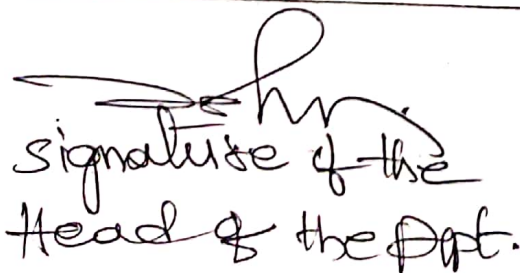 signature of the
Head of the Dept.